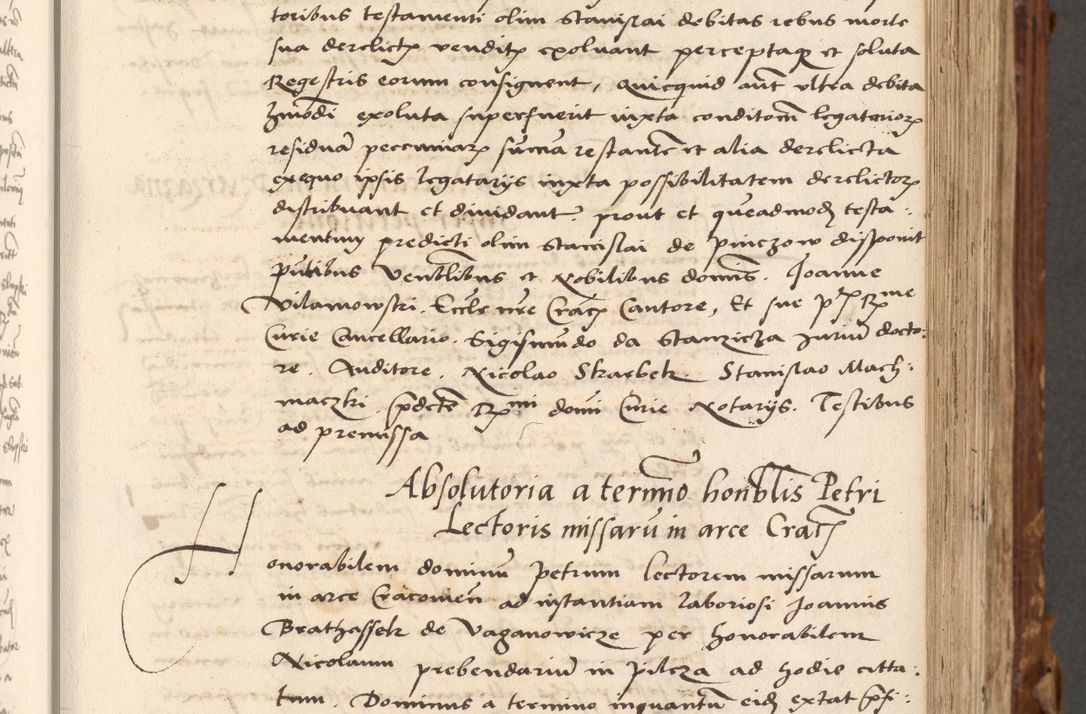 toribus testamenti olim Stanislai debitas rebus morte
sua derelictꝫ venditꝫ exoluant perceptaqꝫ et soluta
Regestris eorum consignent, Quicquid aũt vltra debita
hmõdi exoluta superfuerit iuxta conditoñ legatorioꝝ
residuã pecuniarꝝ sum̃a restante et alia derelicta
exequo ipsis legatarijs iuxta possibilitatem derelictoꝝ
distribuant et diuidant prout et queadmodꝫ testa:
mentum predicti olim Stanislai de Pinczow disponit
Pñtibus Venẽlibus et Nobilibus dominis. Joanne
Vilamowski. Eccle nrẽ Cracꝫ Cantore, Et sue Pꝛ Rꝫme
Curie Cancellario. Sigismundo da Stanziczа Juriũ docto:
re. Auditore. Nicolao Skarbek. Stanislao Mach:
maczki p̃dcte Rꝫmi domi Curie Notarijs. Testibus
ad premissa
Absolutoria a termĩo honblis Petri
Lectoris missarũ in arce Cracꝫ
Honorabilem dominũ Petrum lectorem missarum
in arce Cracouieñ ad instantiam laboriosi Joannis
Brathassek de Vaganowicze per honorabilem
Nicolaum prebendariũ in Pilcza ad hodie citta:
tum. Dominus a termino inquantũ eidꝫ extat p̃fi: